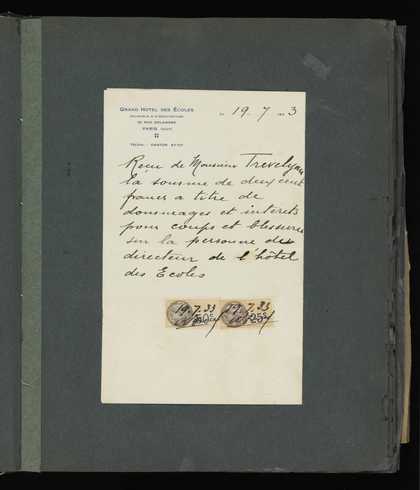 GRAND HOTEL DES ÉCOLES
15 RUE DELAMBRE
PARIS (XIVe)
TÉLÉPH. : DANTON
19.7 193
Reçu de Monsieur Trevelyan
la somme de deux cent
francs a titre de
dommages et interets
pour coups et blessures
sur la personne de
directeur de l'hôtel
des Ecoles
19.7.33 19.7.33
50c 25c